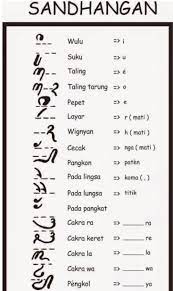 SANDHANGAN
Wulu => i
Suku => u
Taling => é
Taling tarung => o
Pepet => e
Layar => r ( mati )
Wignyan => h ( mati )
Cecak => nga ( mati )
Pangkon => patèn
Pada lingsa => koma ( , )
Pada lungsa => titik
Pada pangkat
Cakra ra => ______ ra
Cakra keret => ______ re
Cakra la => ______ la
Cakra wa => ______ wa
Pèngkol => ______ ya